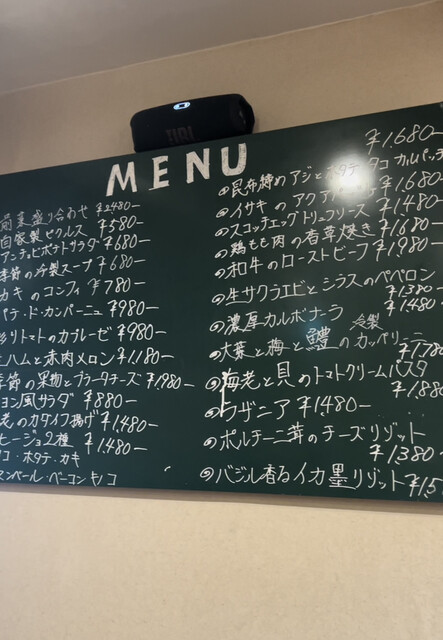 JBL
MENU
前菜盛り合わせ ¥2480-
自家製ピクルス ¥580-
アンチョビポテトサラダ ¥680-
季節の冷製スープ ¥680-
カキのコンフィ ¥780-
パテ・ド・カンパーニュ ¥980-
トマトのカプレーゼ ¥980-
ハムと赤肉メロン ¥1,180-
季節の果物とブラータチーズ ¥1,980-
ヨン風サラダ ¥880-
老のカダイフ揚げ ¥1,480-
ヒージョ2種 ¥1,480-
コ・ホタテ・カキ
マンベール・ベーコンキノコ
昆布締めアジとホタテ タコ カルパッチ
¥1,680-
イサキのアクア ¥1,680-
スコッチエッグトリュフソース ¥1480-
鶏もも肉の香草焼き ¥1680-
和牛のローストビーフ ¥1,980-
生サクラエビとシラスのペペロン
¥1380-
濃厚カルボナーラ ¥1,480-
大葉と梅と鱧の冷製カッペリーニ
¥1,780-
海老と貝のトマトクリームパスタ
¥1,880-
ラザニア ¥1480-
ポルチーニ茸のチーズリゾット
¥1,380-
バジル香るイカ墨リゾット ¥1,5